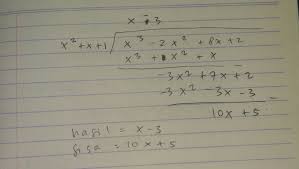 x - 3
x² + x + 1 √ x³ - 2x² + 8x + 2
x³ + x² + x
-3x² + 7x + 2
-3x² - 3x - 3
10x + 5
hasil = x - 3
sisa = 10x + 5